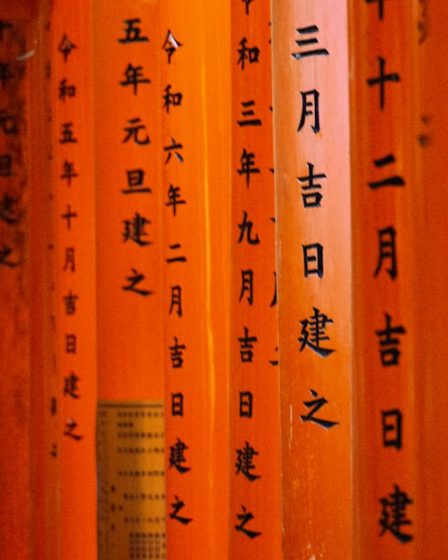 十二月吉日建
三月吉日建之
令和三年九月吉日建之
令和六年二月吉日建之
五年元旦建之
令和五年十月吉日建之
年元旦建之